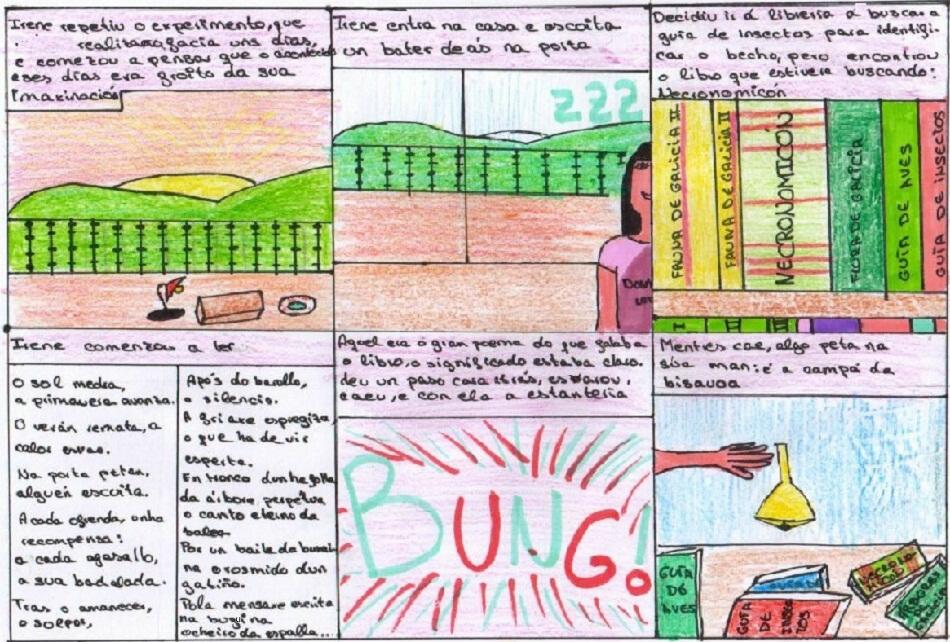 Irene repetiu o experimento, que
realizamos facía uns días,
e comezou a pensar que o acontecido
eses días era groito da sua
Imaxinación
Irene entra na casa e escoita
un bater de ás na porta
ZZZ
Decidiu ir á librería a buscar a
guía de insectos para identifi-
car o becho, pero encontrou
o libro que estivera buscando:
Necronomicón
FAUNA DE GALICIA II
FAUNA DE GALICIA II
NECRONOMICÓN
FLORA DE GALICIA
GUÍA DE AVES
GUÍA DE INSECTOS
Irene comenzou a ler
O sol medra,
a primavera avanza.
O verán remata, a
calor
Na porta petan,
alguén escoita.
A cada ofrenda, unha
recompensa:
a cada agasallo,
a sua badalada.
Tras o amanecer,
o solpor,
Após do barullo,
o silencio.
A friaxe espreguiza,
o que ha de vir
esperta.
En tronco dunha folla
da árbore perpetua
o canto eterno da
balea
Por un baile da buxaina
no orosmido dun
gatiño.
Pola mensaxe escrita
na buguina
ocheiro da espalla...
Aquel era o gran poema do que falaba
o libro, o significado estaba claro.
deu un paso cara atrás, esvarou,
caeu, e con ela a estantería
BUNG!
Mentres cae, algo peta na
súa man: é a campá da
bisavoa
GUÍA
DO
AVES
GUÍA
DE
INSECTOS